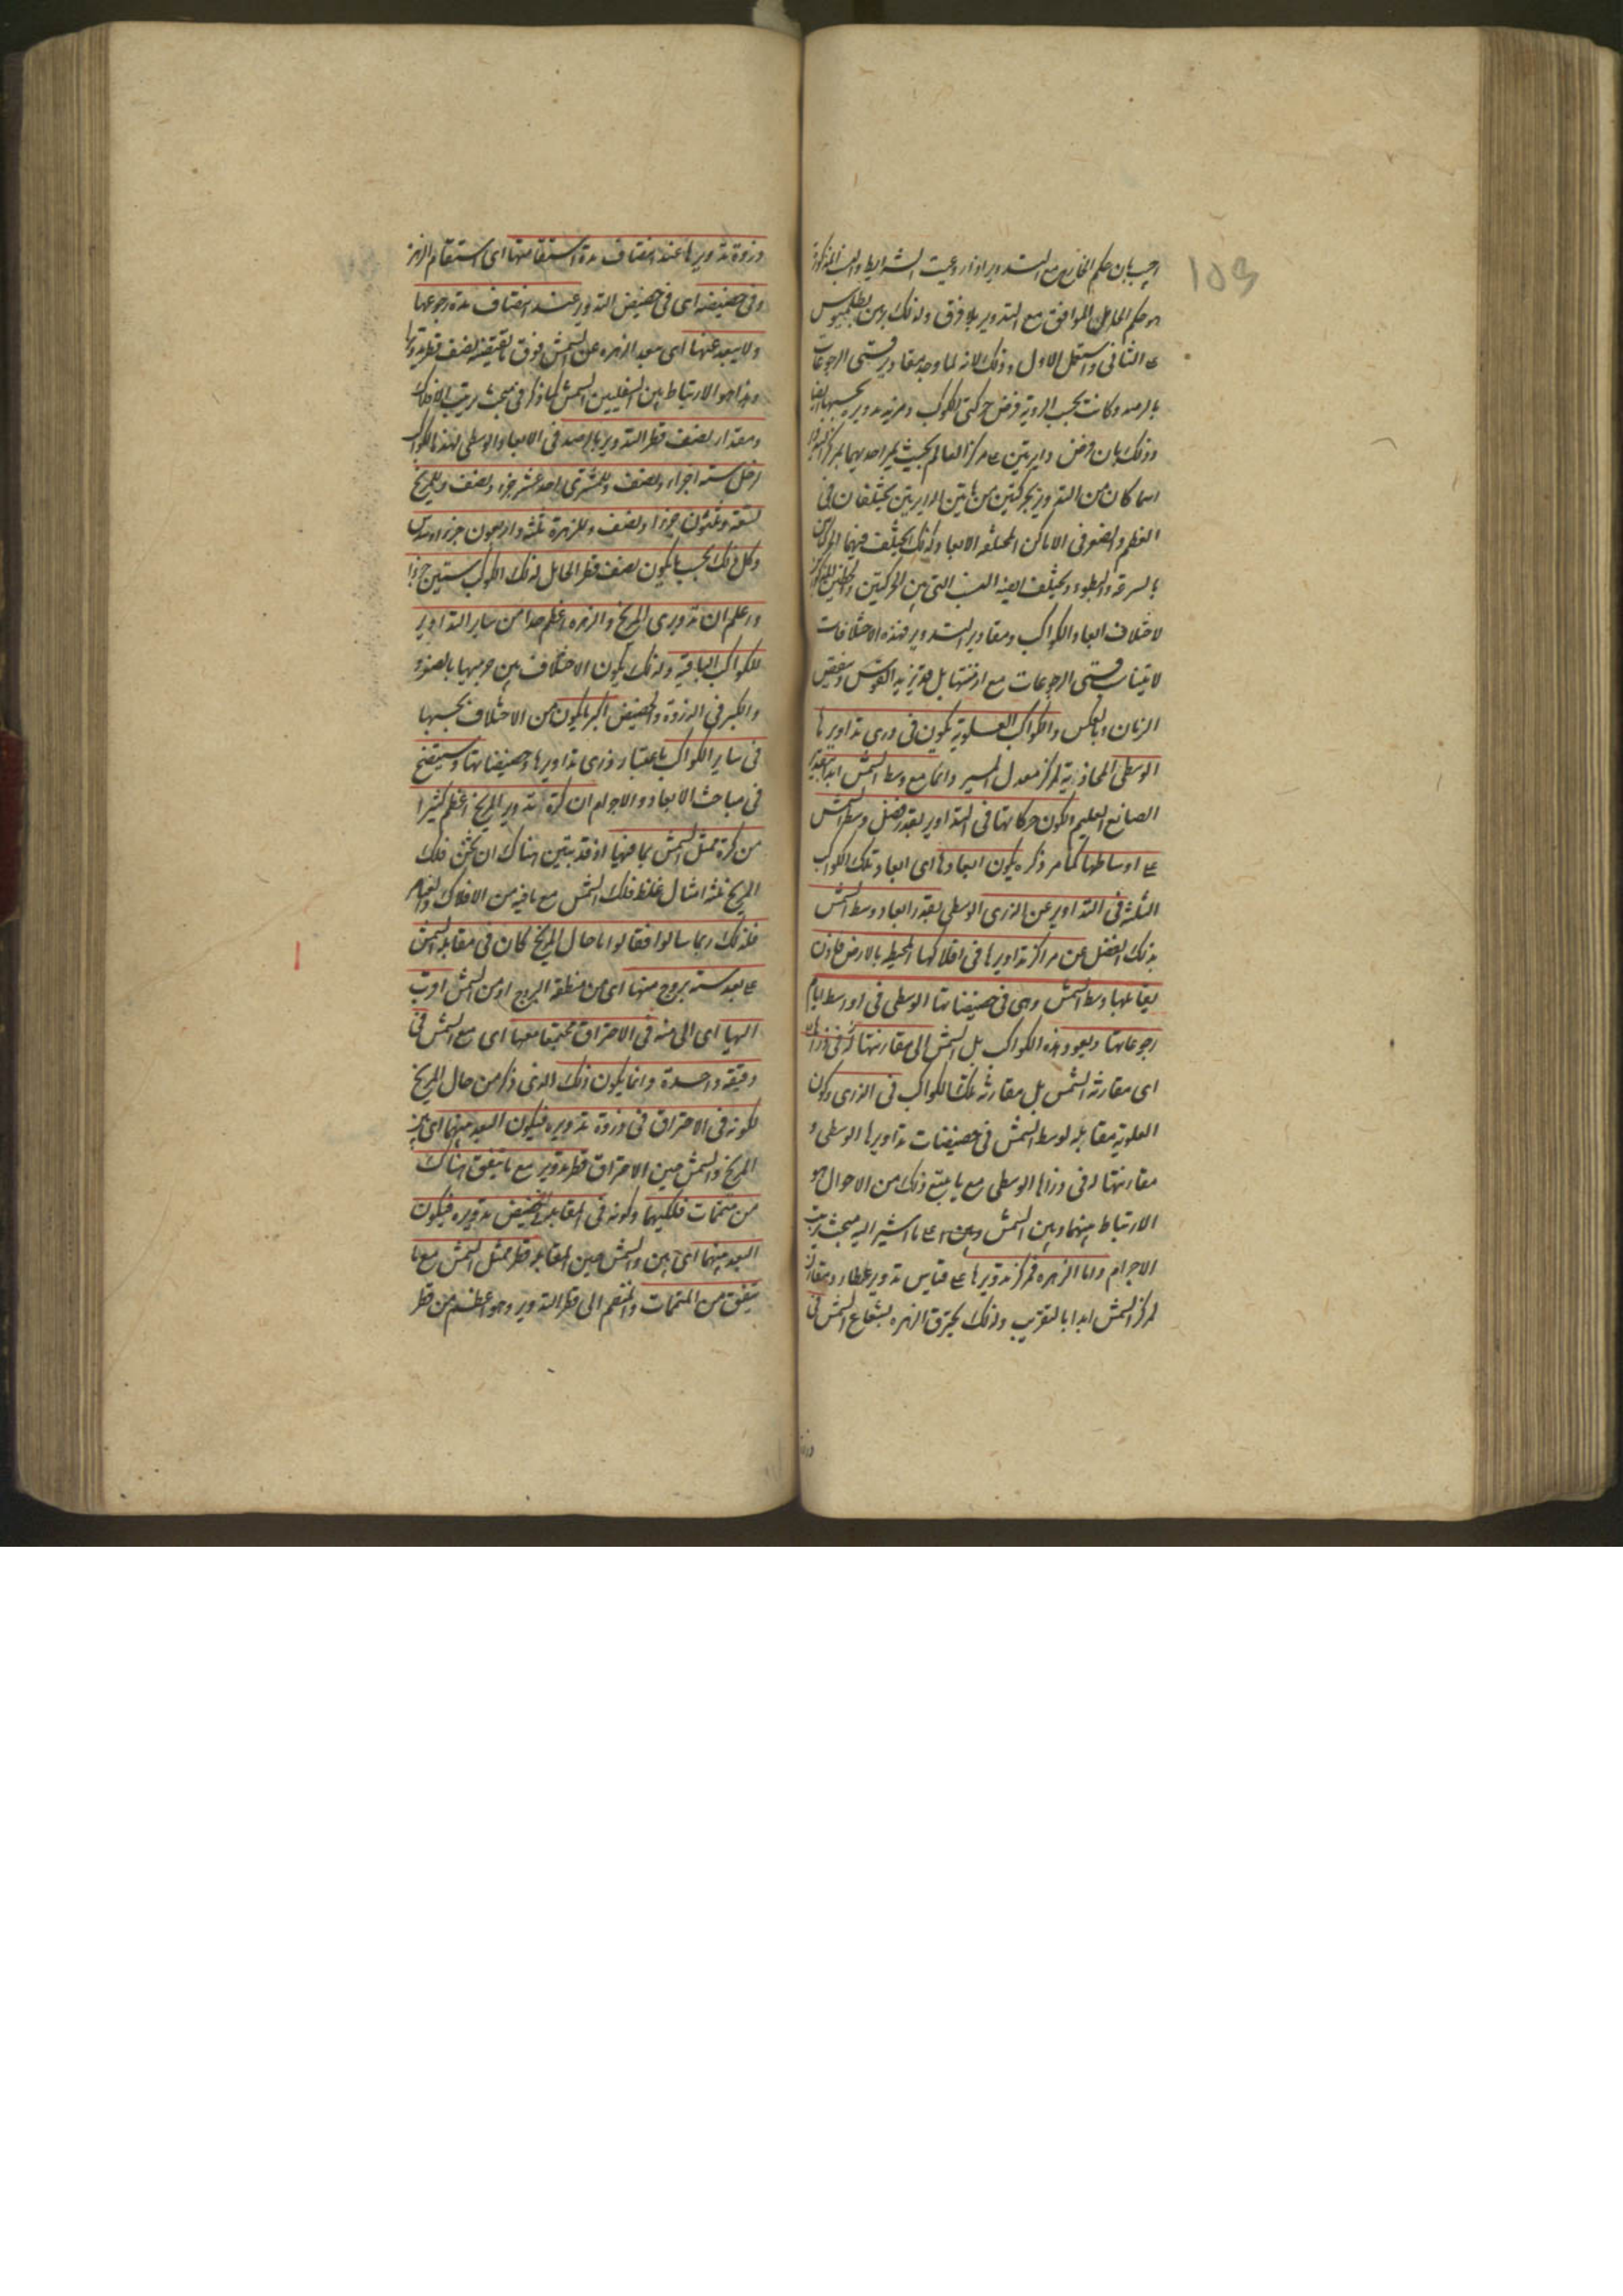 اجيب بان حكم الخارج مع التدوير اذا روعيت الشرايط والنسب المذكورة
هو حكم الحامل الموافق مع التدوير بلا فرق ولذلك برهن بطلميوس
على الثانى واستعمل الاول وذلك لانه لما وجد مقادير قسى الرجوعات
بالرصد وكانت بحسب الروية فرض حركتى الكوكب ومركز تدويره بحسبها ايضا
وذلك بان فرض دايرتين على مركز العالم بحيث يمر احديهما بمركز
التدوير بحركتين من هاتين الدايرتين يختلفان فى
العظم والصغر فى الاماكن المختلفة الابعاد وكذلك يختلف فيهما
بالسرعة والبطوء ويختلف ايضا النسب التى بين الحركتين
لاختلاف ابعاد الكواكب ومقادير التدوير فهذه الاختلافات
لا يتناسب قسى الرجوعات مع ازمنتها بل قد تزيد القوس وينقص
الزمان وبالعكس والكواكب العلوية تكون فى ذرى تداويرها
الوسطى المحاذية لمركز معدل المسير دائما مع وسط الشمس ابدا بتقدير
الصانع العليم ولكون حركاتها فى التداوير بقدر فضل وسط الشمس
على اوساطها كما مر ذكره يكون ابعادها اى ابعاد تلك الكواكب
الثلثة فى التداوير عن الذرى الوسطى بقدر ابعاد وسط الشمس
بذلك الفضل عن مراكز تداويرها فى افلاكها المحيطة بالارض فاذن
يقابلها وسط الشمس وهى فى حضيضاتها الوسطى فى اواسط ايام
رجوعاتها ويعود هذه الكواكب بل الشمس الى مقارنتها
اى مقارنة الشمس بل مقارنة تلك الكواكب فى الذرى وكون
العلوية مقابلة لوسط الشمس فى حضيضات تداويرها الوسطى و
مقارنتها له فى ذراها الوسطى مع ما يتبع ذلك من الاحوال هو
الارتباط بينها وبين الشمس على ما اشير اليه فى مبحث ترتيب
الاجرام واما الزهرة فمركز تدويرها على قياس تدوير عطارد مقارن
لمركز الشمس ابدا بالتقريب ولذلك يحترق الزهرة بشعاع الشمس فى
ذروة تدويرها عند انتصاف مدة استقامتها اى استقامة الزهرة
وفى حضيضه اى فى حضيض التدوير عند انتصاف مدة رجوعها
ولا يبعد عنها اى يبعد الزهرة عن الشمس فوق ما يقتضيه نصف قطر تدويرها
وهذا هو الارتباط بين السفليين والشمس كما ذكر فى مبحث ترتيب الافلاك
ومقدار نصف قطر التدوير بالرصد فى الابعاد الوسطى لهذه الكواكب
لزحل ستة اجزاء ونصف وللمشترى احد عشر جزءا ونصف وللمريخ
تسعة وثلثون جزءا ونصف وللزهرة ثلثة واربعون جزءا وسدس
وكل ذلك بحسب ما يكون نصف قطر الحامل لذلك الكوكب ستين جزءا
واعلم ان تدويرى المريخ والزهرة اعظم جدا من ساير التداوير
للكواكب الباقية ولذلك يكون الاختلاف بين جرميهما بالصغر
والكبر فى الذروة والحضيض اكثر مما يكون من الاختلاف بحسبها
فى ساير الكواكب باعتبار ذرى تداويرها وحضيضاتها وسيتضح
فى مباحث الابعاد والاجرام ان كرة تدوير المريخ اعظم كثيرا
من كرة ممثل الشمس بما فيها اذ قد تبين هناك ان ثخن فلك
المريخ ثلثة امثال غلظ فلك الشمس مع ما فيه من الافلاك والعناصر
فلذلك ربما سالوا فقالوا ما حال المريخ كان فى مقابلة الشمس
على بعد ستة بروج منها اى من منطقة البروج او من الشمس اقرب
اليها اى الى منه فى الاحتراق مجتمعا معها اى مع الشمس فى
دقيقة واحدة وانما يكون ذلك الذى ذكر من حال المريخ
لكونه فى الاحتراق فى ذروة تدويره فيكون البعد بينهما اى بين
المريخ والشمس حين الاحتراق قطر تدويره مع ما يتفق هناك
من متممات فلكيهما وكونه فى المقابلة فى حضيض تدويره فيكون
البعد بينهما اى بين والشمس حين المقابلة قطر ممثل الشمس مع ما
يتفق من المتممات والمنضم الى قطر التدوير وهو اعظم من قطر